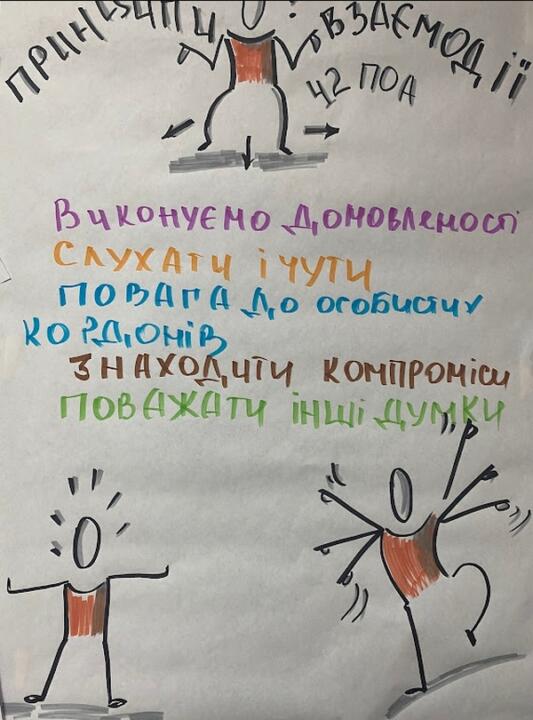 ПРИНЦИПИ ВЗАЄМОДІЇ
42 ПОД
ВИКОНУЄМО ДОМОВЛЕНОСТІ
СЛУХАТИ І ЧУТИ
ПОВАГА ДО ОСОБИСТИХ
КОРДОНІВ
ЗНАХОДИТИ КОМПРОМІСИ
ПОВАЖАТИ ІНШІ ДУМКИ